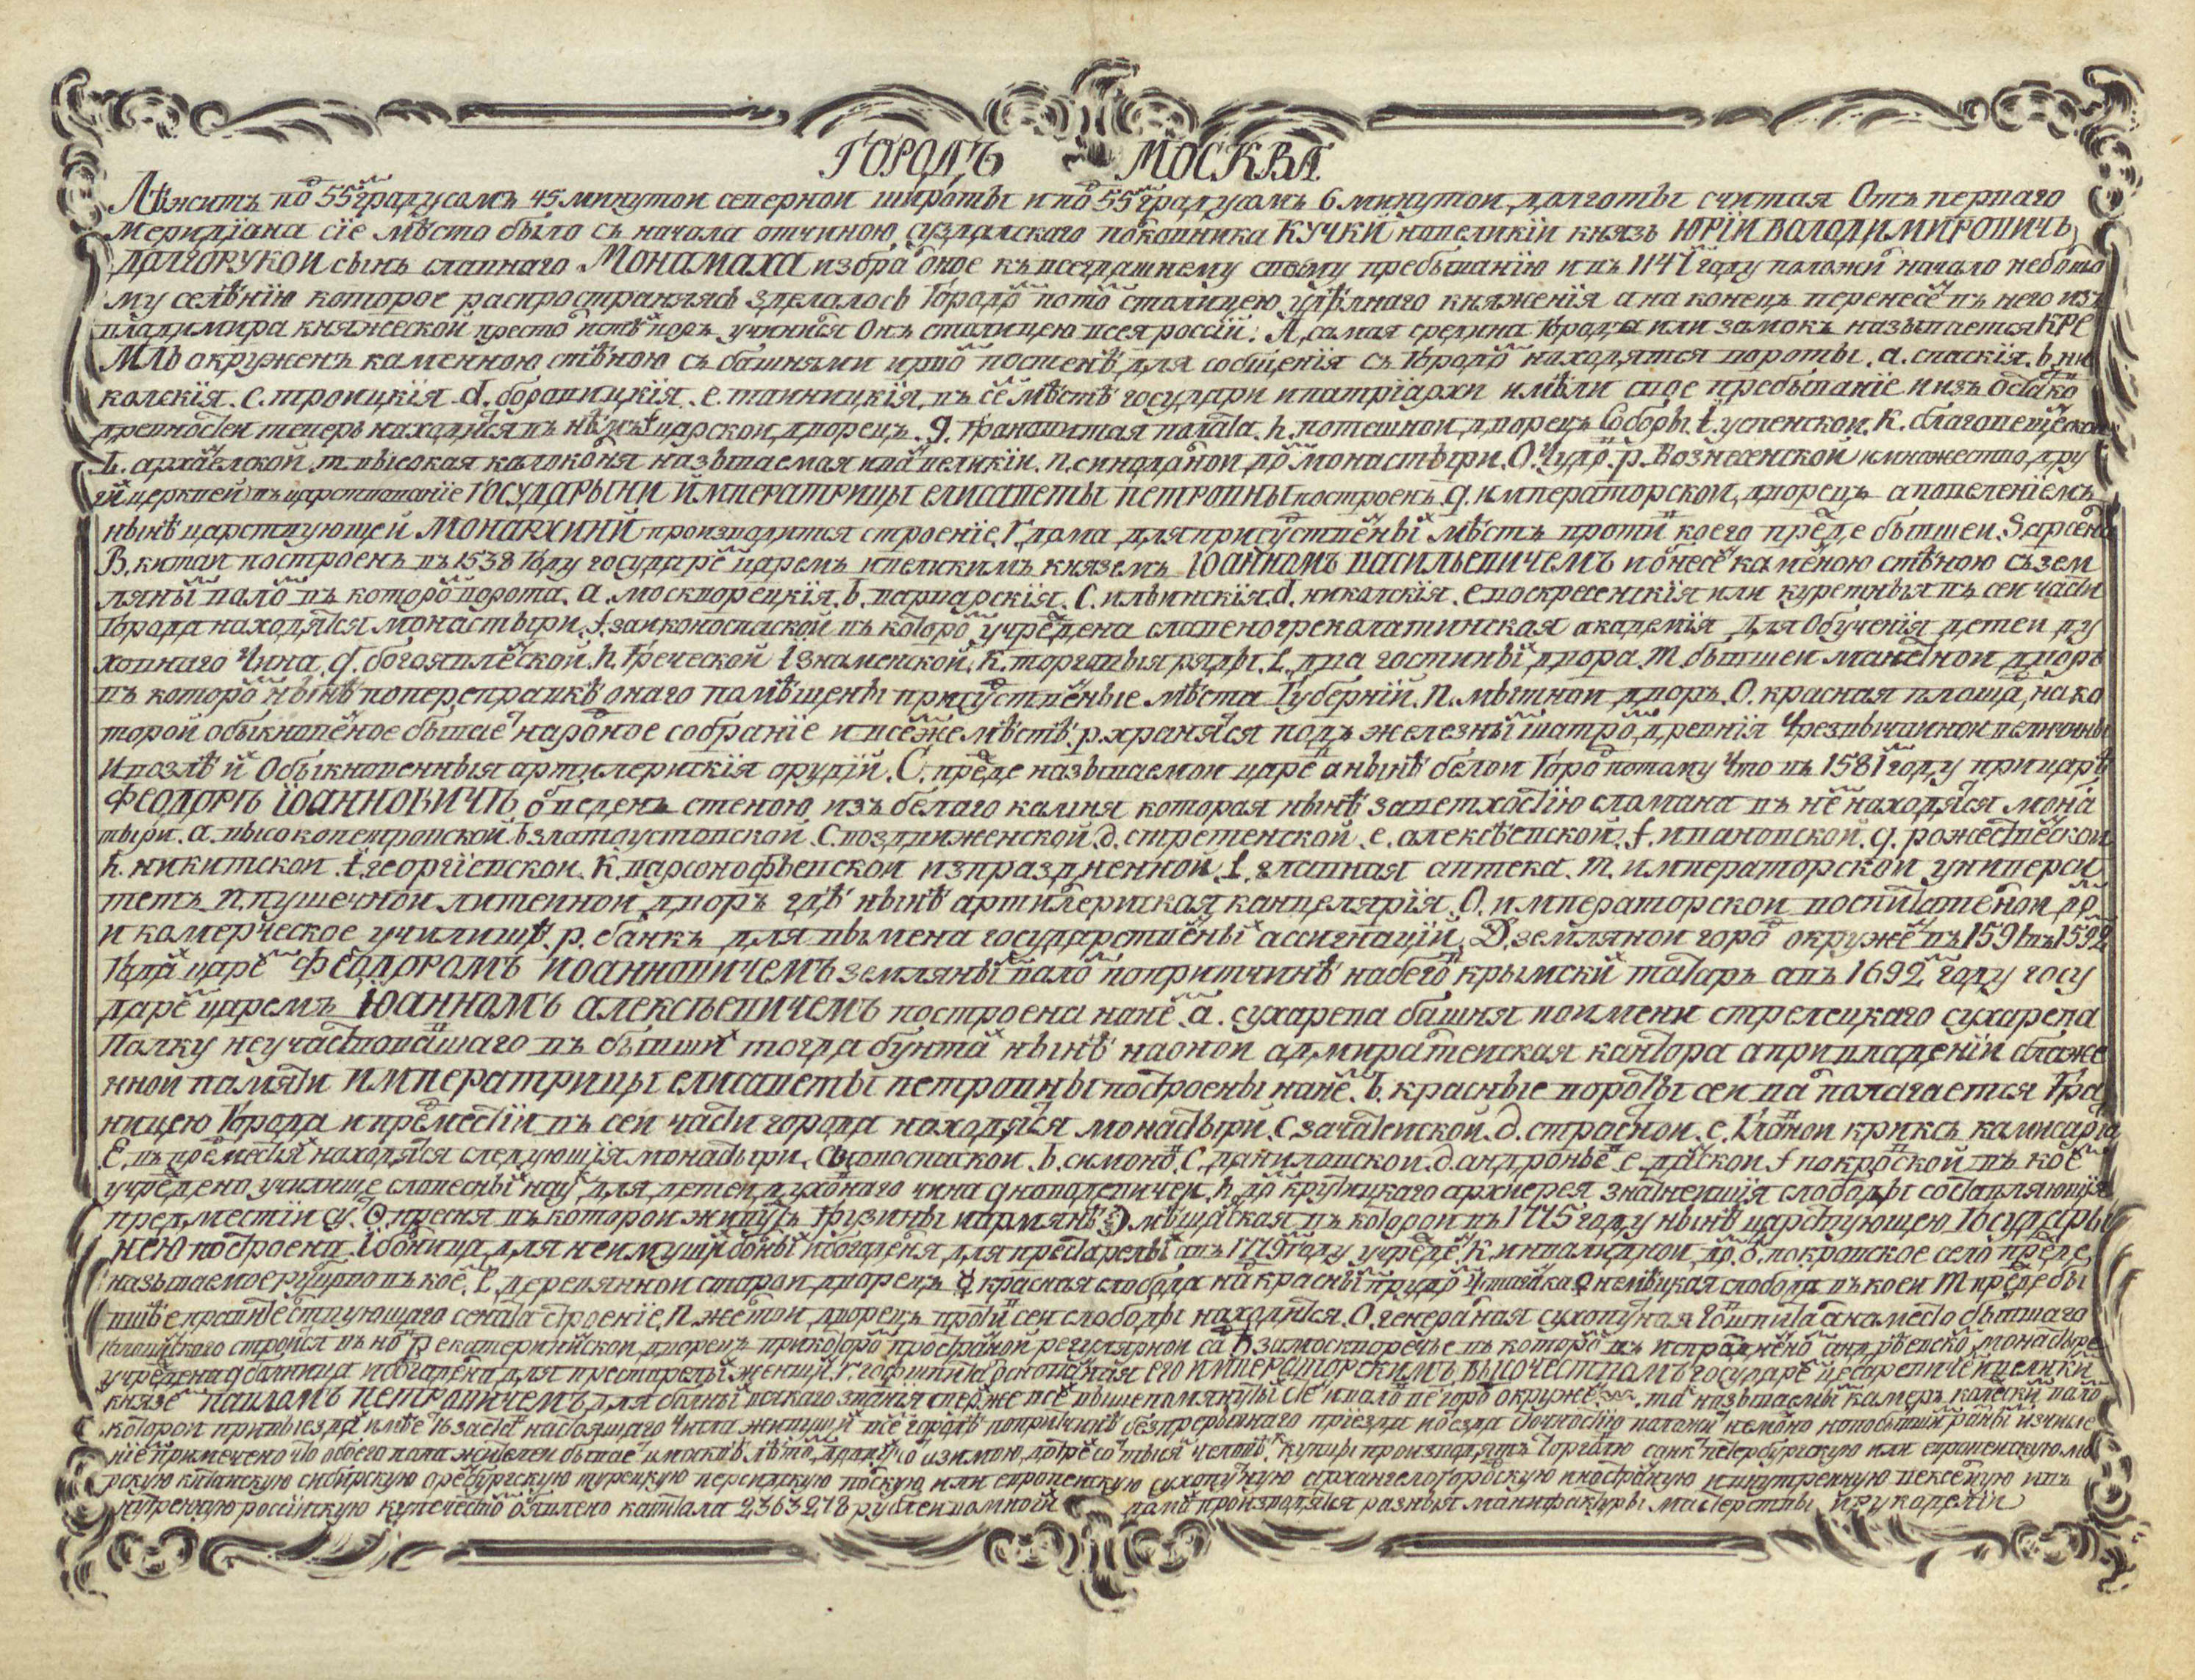 ГОРОДЪ МОСКВА
Лѣжитъ по 55 градусамъ 45 минутои севернои широты и по 55 градусамъ 6 минутои долготы считая Отъ перваго
Меридїана сїе мѣсто было съ начала отчиною суздалскаго полковника КУЧКИ но великїи князь ЮРЇИ ВОЛОДИМИРОВИЧЬ
ДОЛГОРУКОИ сынъ славнаго МОНАМАХА избрал оное къ всегдашнему своему пребыванїю и въ 1147 году положил начало неболшо
му селѣнїю которое распространяясь зделалось Городом потом столицею удѣлнаго княженїя а на конецъ перенесен въ него изъ
владимира княжескои престол и стѣх поръ учинился Онъ столицею всея россїи: А, самая средина Города или замокъ называется КРЕ
МЛЬ окруженъ каменною стѣною съ башнями и рвом по стенѣ для собщенїя съ Городом находятся вороты. a. спаскїя. b. ни
колскїя. c. троицкїя d. боровицкїя. e. таиницкїя, въ сем мѣстѣ государи и патрїархи имѣли свое пребыванїе и изъ Остатков
древностеи теперь находится въ нѣм f царскои дворецъ. g. грановитая полата. h. потешнои дворецъ Соборы. i. успенскои. K. благовещенскои
L. архангелскои. m. высокая колоколня называемая иван великїи. n. синоданои дом монастыри. O. Чудов. p. Вознесенскои и множество дру
гих церквеи въ царствованїе ГОСУДАРЫНИ ИМПЕРАТРИЦЫ ЕЛИСАВЕТЫ ПЕТРОВНЫ построенъ q. императорскои дворецъ а повеленїемъ
нынѣ царствующеи МОНАРХИНИ производится строенїе, r, дома для присуственых мѣстъ против коего прежде бывшеи. S. арсенал
B. китаи построенъ въ 1538 Году государем царемъ и великимъ княземъ ІОАННОМЪ ВАСИЛЬЕВИЧЕМЪ и обнесен каменою стѣною съ зем
ляным валом въ котором ворота. a. москворецкїя. b. варварскїя. c. ильинскїя. d. николскїя. e воскресенскїя или куретныя въ сеи части
Города находятся монастыри. f. заиконоспаскои въ котором учреждена славеногреколатинская академїя для Обученїя детеи ду
ховнаго Чина. g. богоявленскои. h. Греческои i знаменскои. K. торговыя ряды. L. два гостиных двора. m. бывшеи манетнои дворъ
въ котором нынѣ по переправкѣ онаго помѣщены присуственые мѣста Губернїи. n. мытнои дворъ. O. красная площад, на ко
торои обыкновеное бывает народное собранїе и в семже мѣстѣ. p. хранятся подъ железным шатром древнїя Чрезвычаинои величины
и возлѣ их Обыкновенныя артилерискїя орудїи. C. прежде называемои царев а нынѣ белои Город потому Что въ 1581 году при царѣ
ФЕОДОРѢ ІОАННОВИЧѢ обведенъ стеною изъ белаго камня которая нынѣ за ветхостїю сломана въ нем находятся мона
тыри. a. высокопетровскои. b златоустовскои. c. воздвиженскои. d. стретенскои. e. алексѣевскои. f. ивановскои. g. рожественскои
h. никитскои. i. георгїевскои. K. варсонофьевскои изпраздненнои. l. главная аптека. m. императорскои универси
тетъ. n. пушечнои литеинои дворъ гдѣ нынѣ артилериская канцелярїя. O. императорскои воспитателнои дом
и комерческое училище. p. банкъ для вымена государственых ассигнацїи. D. землянои город окружен въ 1591 въ 1592
Годах царем ФЕОДОРОМЪ ІОАННОВИЧЕМЪ земляным валом по притчинѣ набегов крымских татаръ а въ 1692 году госу
дарем царемъ ІОАННОМЪ АЛЕКСѢЕВИЧЕМЪ построена на нем a. сухарева башня по имени стрелецкаго сухарева
Полку неучаствовавшаго въ бывших тогда бунтах нынѣ на онои адмиралтеиская кантора а при владенїи блаже
ннои памяти ИМПЕРАТРИЦЫ ЕЛИСАВЕТЫ ПЕТРОВНЫ построены на нем b. красные вороты сеи вал полагается Гра
ницею Города и предместїи въ сеи части города находятся монастыри. c зачатеискои. d. страстнои. e. Главнои крикс камисарїа
E, въ предместїях находятся следующїя монастыри. a новоспаскои. b. симонов. c. даниловскои. d. андроньев e. данскои f покровскои въ коем
учреждено училище словесных наук для детеи духовнаго чина g новодевичеи. h. дом крутицкаго архиерея знатнеишїя слободы составляющїя
предместїи суть. пресня въ которои живутъ грузины и армянѣ мѣщанская въ которои въ 1775 году нынѣ царствующею Государы
нею построена i болница для неимущих болных и богаделня для престарелых а въ 1779 году учрежден K. инвалиднои дом. покровское село прежде
называемое рубцово въ коем. l. деревяннои старои дворецъ красная слобода на красных прудах немѣцкая слобода въ коеи m прежде бы
вшѣе правителствующаго сената строенїе. n. жентои дворецъ против сеи слободы находится. O. генералная сухопутная гошпитал на место бывшаго
Головинского строится въ нов p екатерининскои дворецъ при котором пространои регулярнои сад замоскворечье въ котором въ испраздненом андрѣевском монастыре
учреждена q болница и богаделня для престарелых женщин. r. гофшпитал основанная его ИМПЕРАТОРСКИМЪ ВЫСОЧЕСТВОМЪ государем цесаревичем и великим
княземъ ПАВЛОМЪ ПЕТРОВИЧЕМЪ для болных всякаго званїя
которои при въездах имѣет настоящаго Числа живущих в сем городѣ по причинѣ безпрерывнаго приезда и отезда
нїем примечено что обоего пола жителеи бывает в москвѣ лѣтом
рскую китаискую сибирскую оренбургскую турецкую персицкую полскую или европеискую сухопутную архангелогородскую иностраную и внутреннюю
нутреннюю россїискую купечеством обявлено капитала 2363278 рублеи домами производятся разныя манифактуры мастерствы и рукоделїи